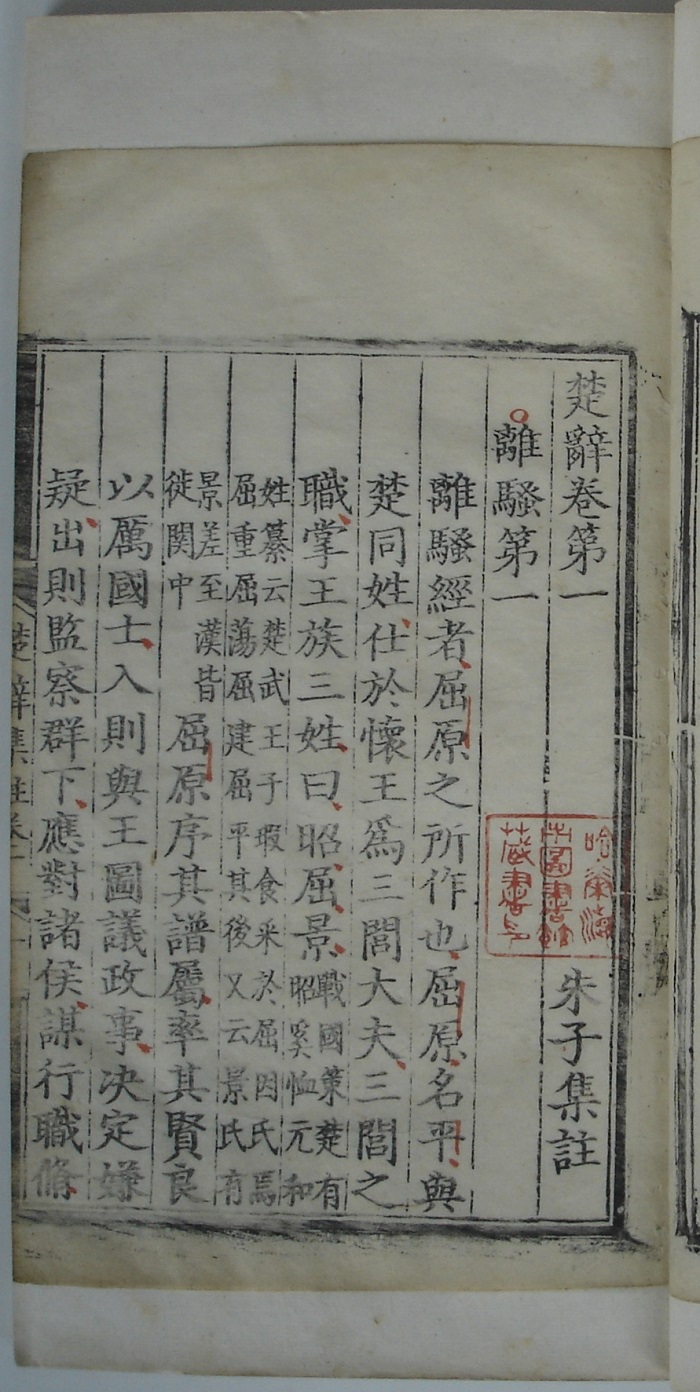 楚辭卷第一
朱子集註
離騷第一
離騷經者屈原之所作也屈原名平與
楚同姓仕於懷王爲三閭大夫三閭之
職掌王族三姓曰昭屈景戰國策楚有昭奚恤元和
姓纂云楚武王子瑕食采於屈因氏焉屈重屈蕩屈建屈平其後又云景氏有
景差至漢皆徙関中屈原序其譜屬率其賢良
以厲國士入則與王圖議政事决定嫌
疑出則監察群下應對諸侯謀行職脩
楚辭集註卷一
藏書